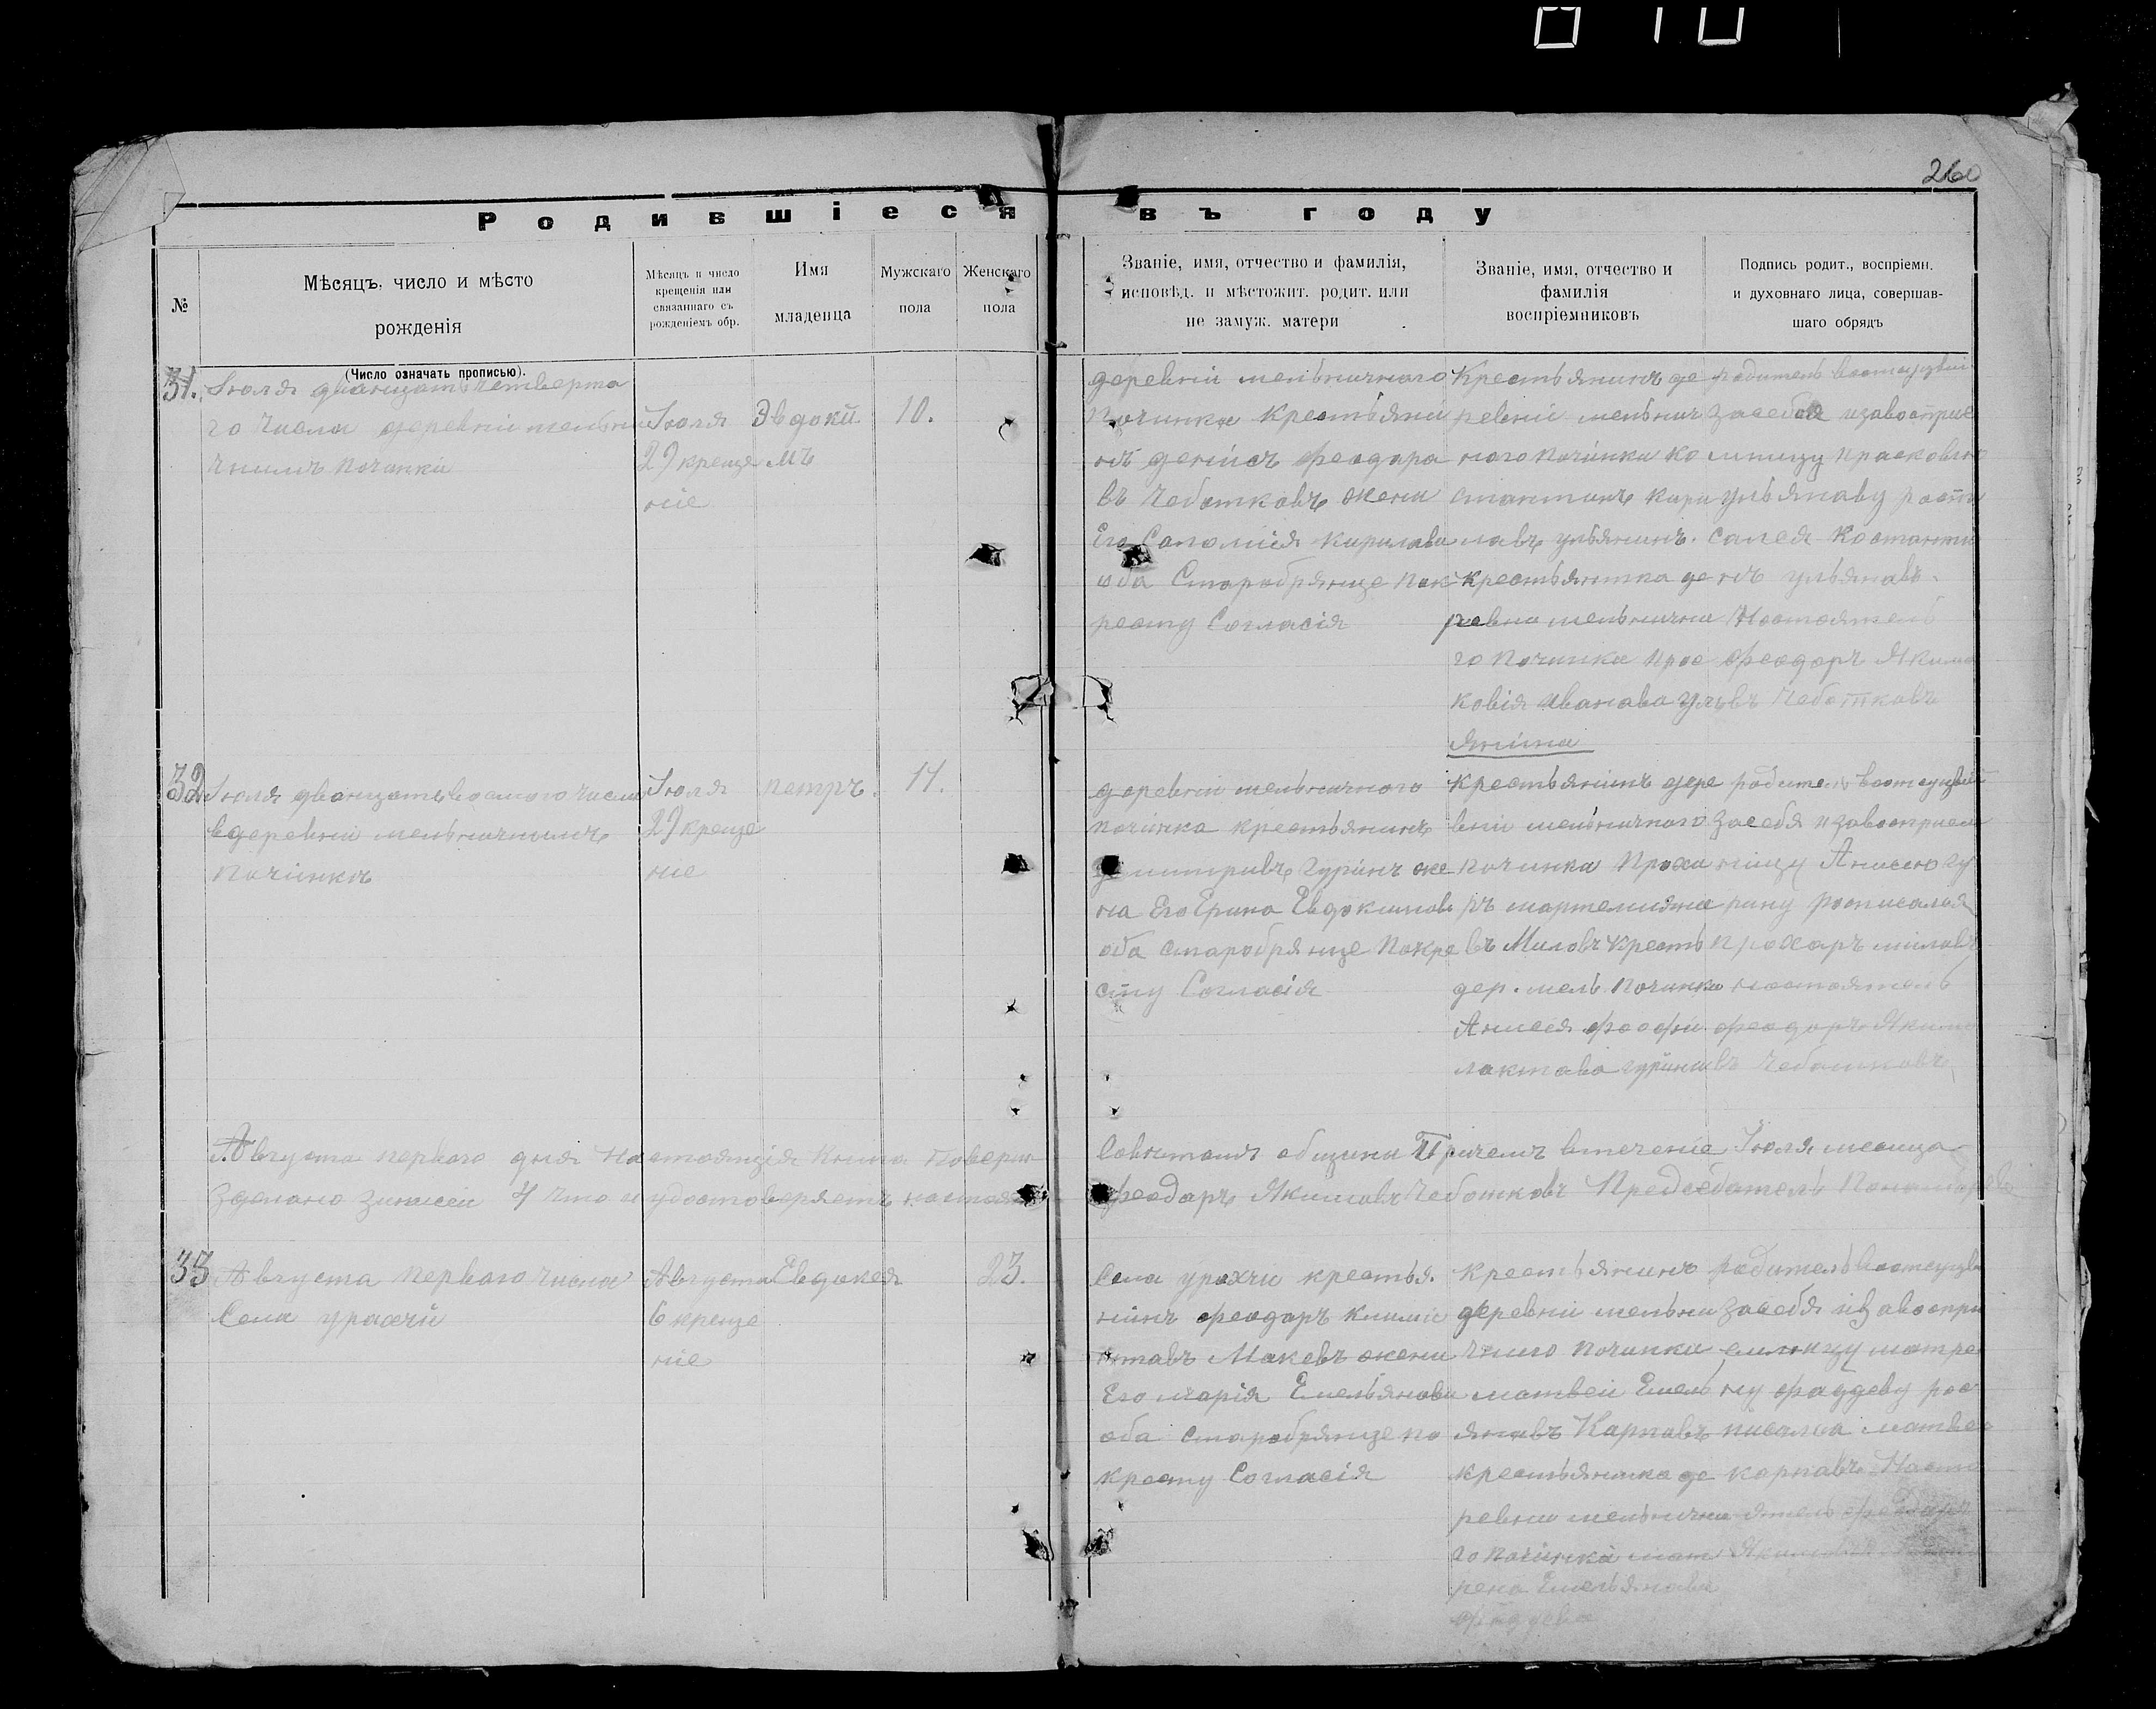 260
Родившіеся въ году
№
Мѣсяцъ, число и мѣсто
рожденія
(Число означать прописью).
Мѣсяцъ и число
крещенія или
связаннаго съ
рожденіемъ обр.
Имя
младенца
Мужскаго
пола
Женскаго
пола
Званіе, имя, отчество и фамилія,
исповѣд. и мѣстожит. родит. или
не замуж. матери
Званіе, имя, отчество и
фамилія
воспріемниковъ
Подпись родит., воспріемн.
и духовнаго лица, совершав-
шаго обрядъ
31.
Июля двацать четверта
го числа деревни мельни
чнимъ починки
Июля
29 креще
ніе
Эвдоки
мъ
10.
деревни мельничного
починка крестьяни
нъ денисъ феодара
въ Чеботковъ жена
Его Саломия кирилава
оба Старобрянце пок
ресту Согласія
Крестьянинъ де
ревни мельнич
ного починки ко
стантинъ кири
лавъ ульянинъ.
крестьянтка де
ревни мельнични
го починка прос
ковія иванава уль
янина
родитель
засебя изавосприе
мницу прасковию
ульянаву росп
салея костанти
нъ ульянавъ.
Настоятель
феодаръ Якимо
въ Чеботковъ
32
Июля двацать восмого числа
в деревни мельничнимъ
починкъ
Июля
29 креще
ніе
петръ.
11.
деревни мельничного
починка крестьянинъ
димитривъ гуринъ же
на Его Ерина Евдокимов
оба старобрянце покре
сту Согласія
крестьянинъ дере
вни мельничного
починка Проха
ръ мартемияна
въ Миловъ крестъ
дер. мель починка
Анисея феофи
лактава гурина
родитель
засебя изавосприем
ницу Анисею гу
рину росписалея
Прохаръ миловъ
настоятель
феодаръ Якимо
въ Чеботковъ
Августа первого дня настоящія книга поверин
зделано записеи 4 что и удостоверяетъ настоя
Совитомъ общины Причемъ втечение Июля месица
феодаръ Якимовъ Чеботковъ Председатель Пономарев
33
Августа первого числа
Села урахчи
Августа
6 креще
ніе
Евдокея
23.
Села урахчи крестья
нинъ феодаръ клими
нтавъ Макевъ жена
Его марія Емельянова
оба старобрянце по
кресту Согласія
крестьянинъ
деревни мельни
чного починки
матвеи Емель
янавъ Карпавъ
крестьяника де
ревни мельнични
го починки мат
рена Емельянава
фаддева
родитель
засебя изавоспри
емницу матре
ну фаддеву рос
писалса матвеи
карпавъ Насто
ятель феодаръ
Якимовъ